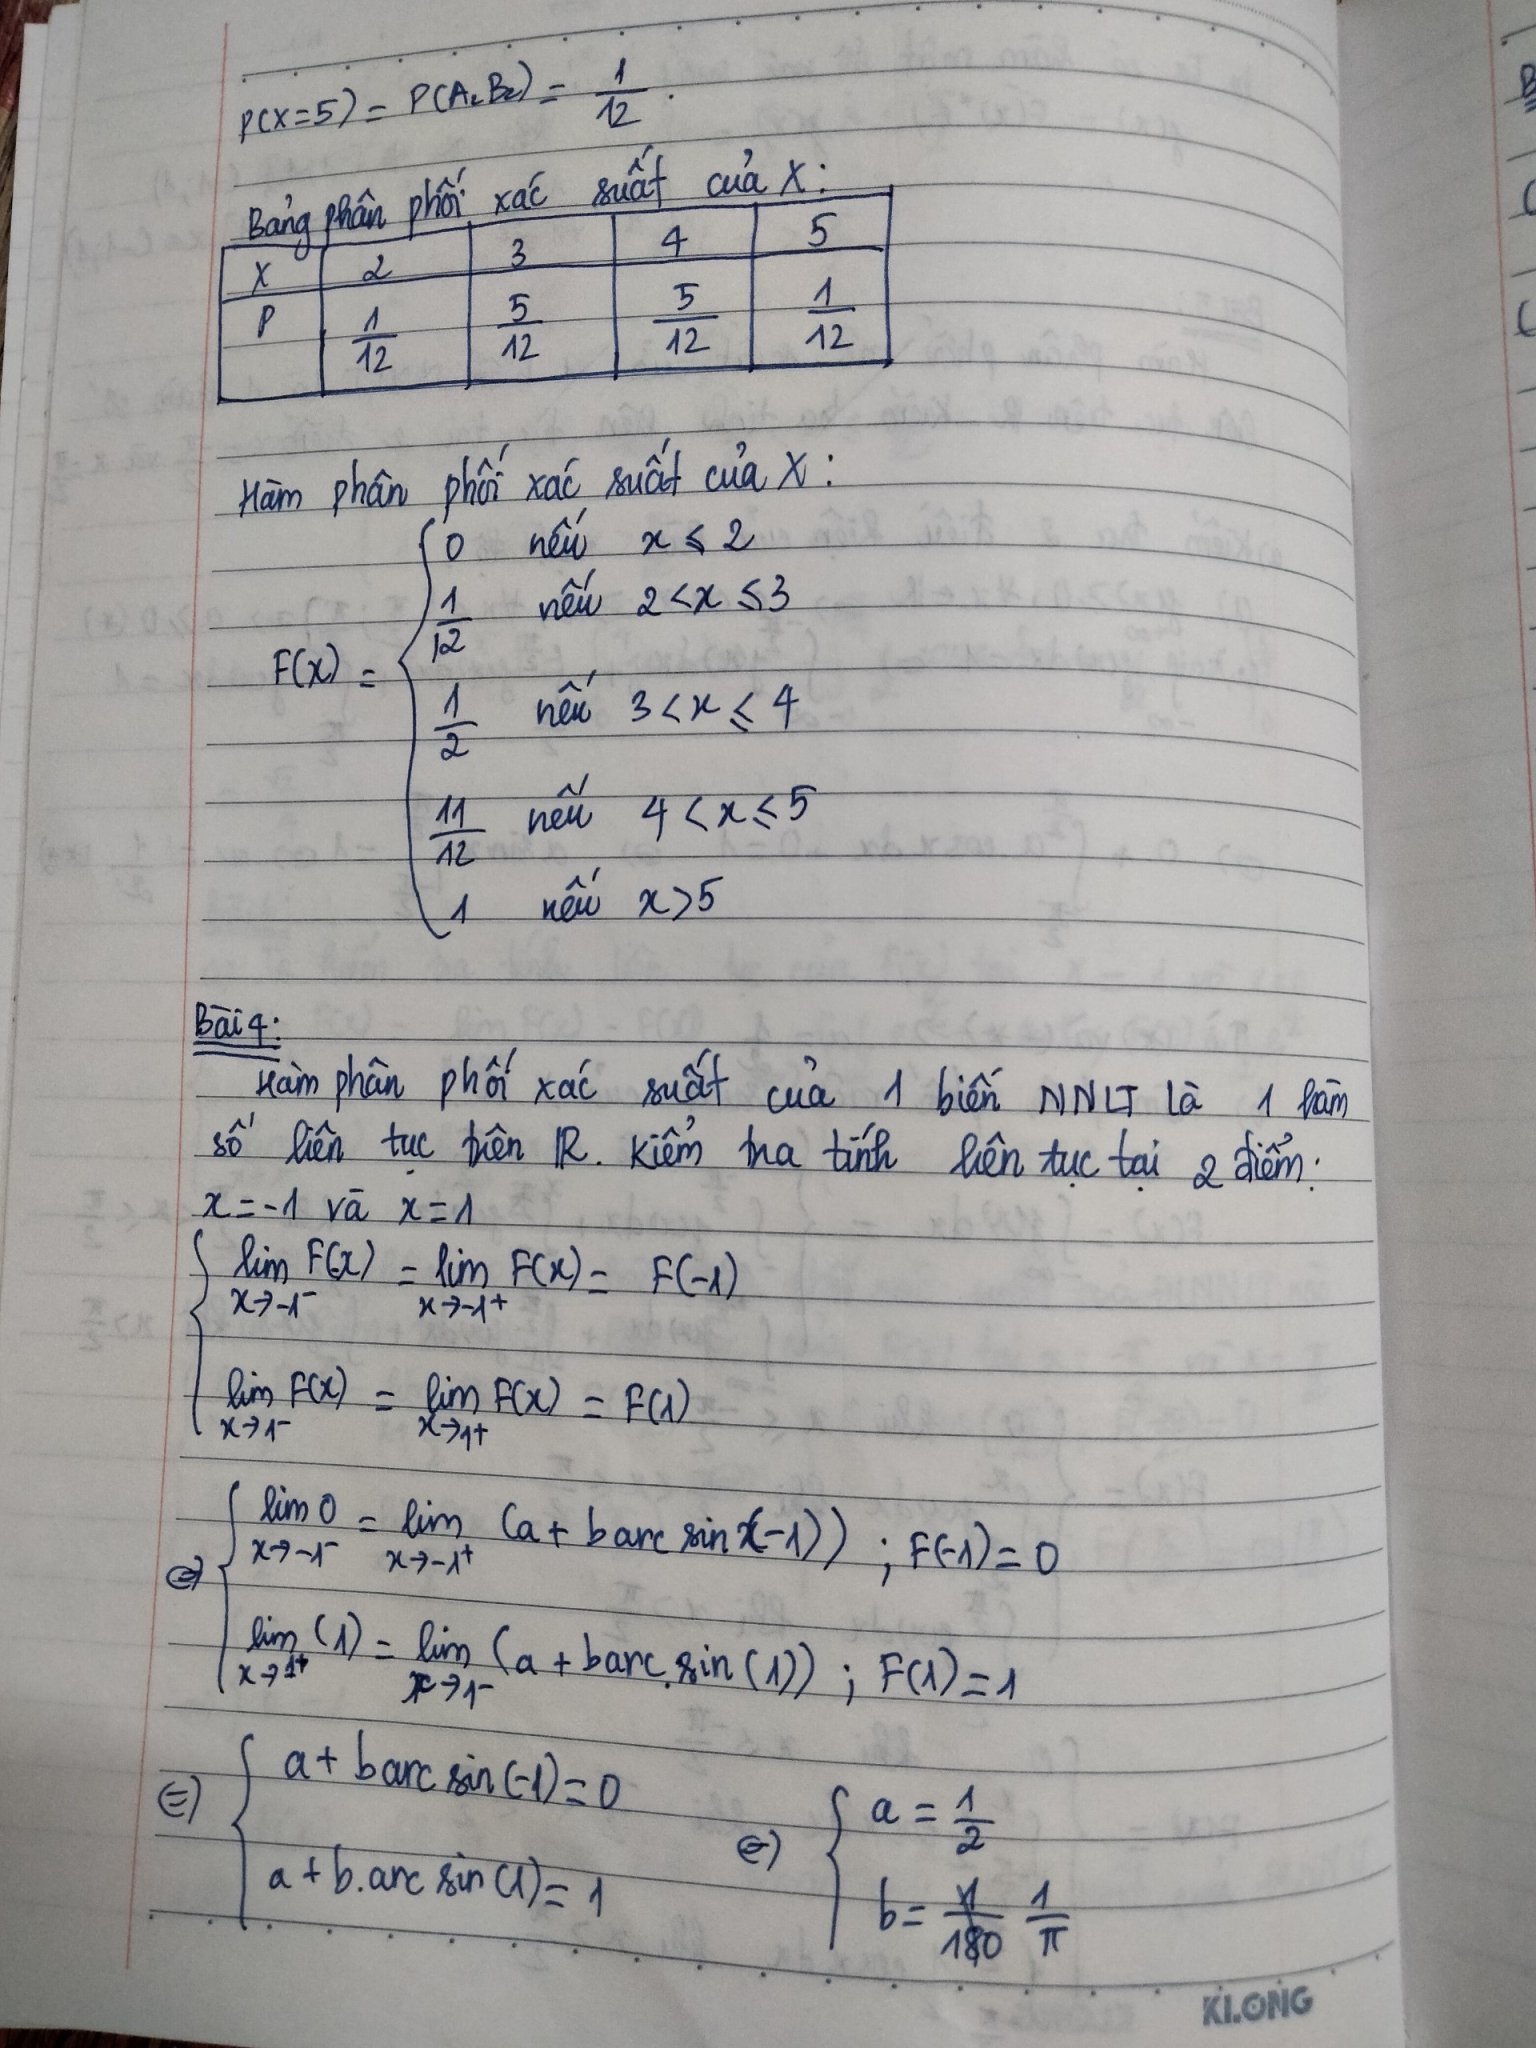 P(X=5) = P(A₂B₂) = 1/12.
Bảng phân phối xác suất của X:
X 2 3 4 5
P 1/12 5/12 5/12 1/12
Hàm phân phối xác suất của X:
0 nếu x ≤ 2
1/12 nếu 2 < x ≤ 3
F(x) =
1/2 nếu 3 < x ≤ 4
11/12 nếu 4 < x ≤ 5
1 nếu x > 5
Bài 4:
Hàm phân phối xác suất của 1 biến NNLT là 1 hàm
số liên tục trên R. Kiểm tra tính liên tục tại 2 điểm:
x = -1 và x = 1
lim F(x) = lim F(x) = F(-1)
x→-1⁻ x→-1⁺
lim F(x) = lim F(x) = F(1)
x→1⁻ x→1+
⇔ lim 0 = lim (a + b arc sin (-1)) ; F(-1) = 0
x→-1⁻ x→-1⁺
lim (1) = lim (a + b arc.sin (1)) ; F(1) = 1
x→1⁺ x→1⁻
⇔ a + b arc sin (-1) = 0 ⇔ a = 1/2
a + b.arc sin (1) = 1 b = 1/π
KLONG